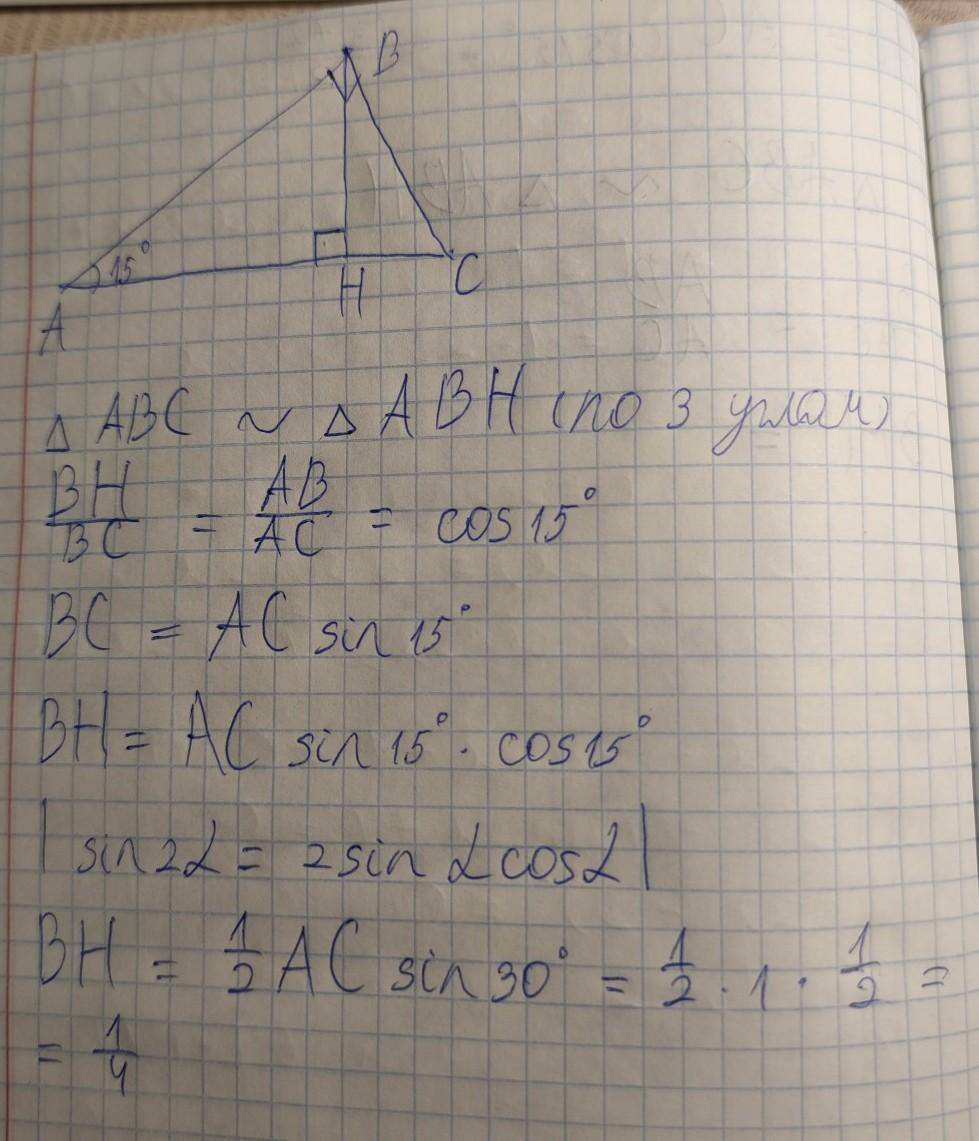 B
15°
H
C
A
△ ABC ~ △ ABH (по 3 углам)
BH/BC = AB/AC = cos 15°
BC = AC sin 15°
BH = AC sin 15° · cos 15°
| sin 2α = 2 sin α cos α |
BH = 1/2 AC sin 30° = 1/2 · 1 · 1/2 =
= 1/4